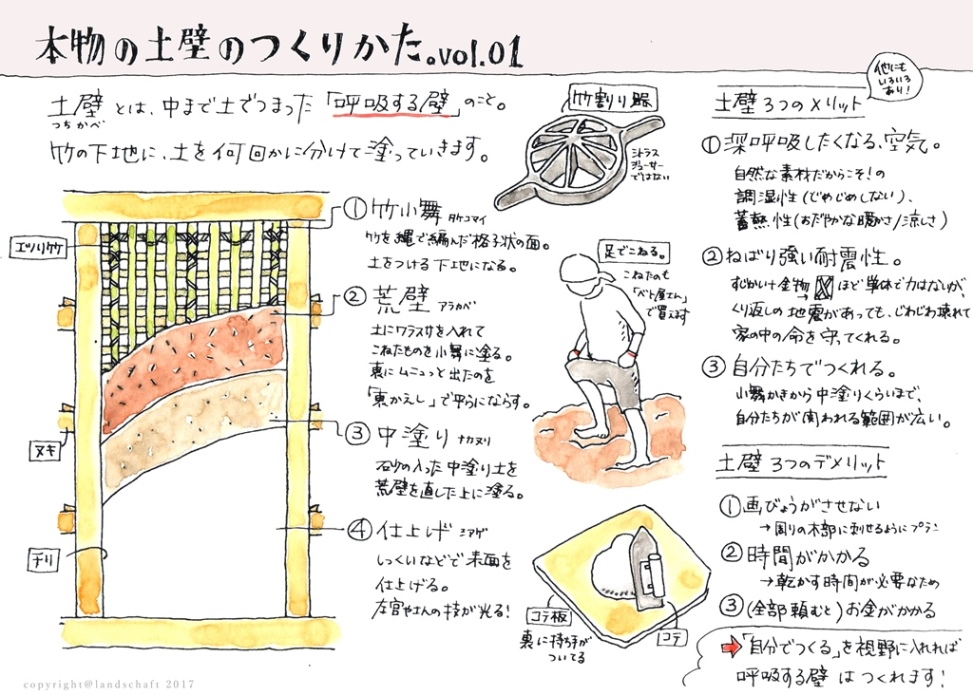 本物の土壁のつくりかた。vol.01
土壁とは、中まで土でつまった「呼吸する壁」のこと。
つちかべ
竹の下地に、土を何回かに分けて塗っていきます。
エツリ竹
ヌキ
チリ
①竹小舞 タケコマイ
竹を縄で編んだ格子状の面。
土をつける下地になる。
②荒壁 アラカベ
土にワラスサを入れて
こねたものを小舞に塗る。
裏にムニュっと出たのを
「裏かえし」で平らにならす。
③中塗り ナカヌリ
石砂の入った中塗り土を
荒壁を直した上に塗る。
④仕上げ シアゲ
しっくいなどで表面を
仕上げる。
左官やさんの技が光る!
竹割り器
シトラス
ジューサー
ではない
足でこねる。
こねたのも
「ベト屋さん」
で買えます
コテ板
裏に持ち手が
ついてる
コテ
土壁3つのメリット
他にも
いろいろ
あり!
①深呼吸したくなる、空気。
自然な素材だからこそ!の
調湿性(じめじめしない)、
蓄熱性(おだやかな暖かさ/涼しさ)
②ねばり強い耐震性。
すじかいや金物→ほど単体で力はないが、
くり返しの地震があっても、じわじわ壊れて
家の中の命を守ってくれる。
③自分たちでつくれる。
小舞かきから中塗りくらいまで、
自分たちが関われる範囲が広い。
土壁3つのデメリット
①画びょうがささせない
→周りの木部に刺せるようにプラン
②時間がかかる
→乾かす時間が必要なため
③(全部頼むと)お金がかかる
➡「自分でつくる」を視野に入れれば
呼吸する壁はつくれます!
copyright@landschaft 2017